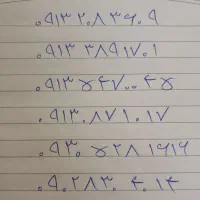 ۰۹۱۳ ۲۰۸ ۳۶۰۹
۰۹۱۳ ۳۸۹ ۱۷۰۱
۰۹۱۳ ۵۴۷ ۰۰ ۴۵
۰۹۱۳ ۰۸۷ ۱۰ ۱۷
۰۹۳۰ ۵۲۸ ۱۶۱۶
۰۹۰۲۸۳۰ ۴۰ ۱۴